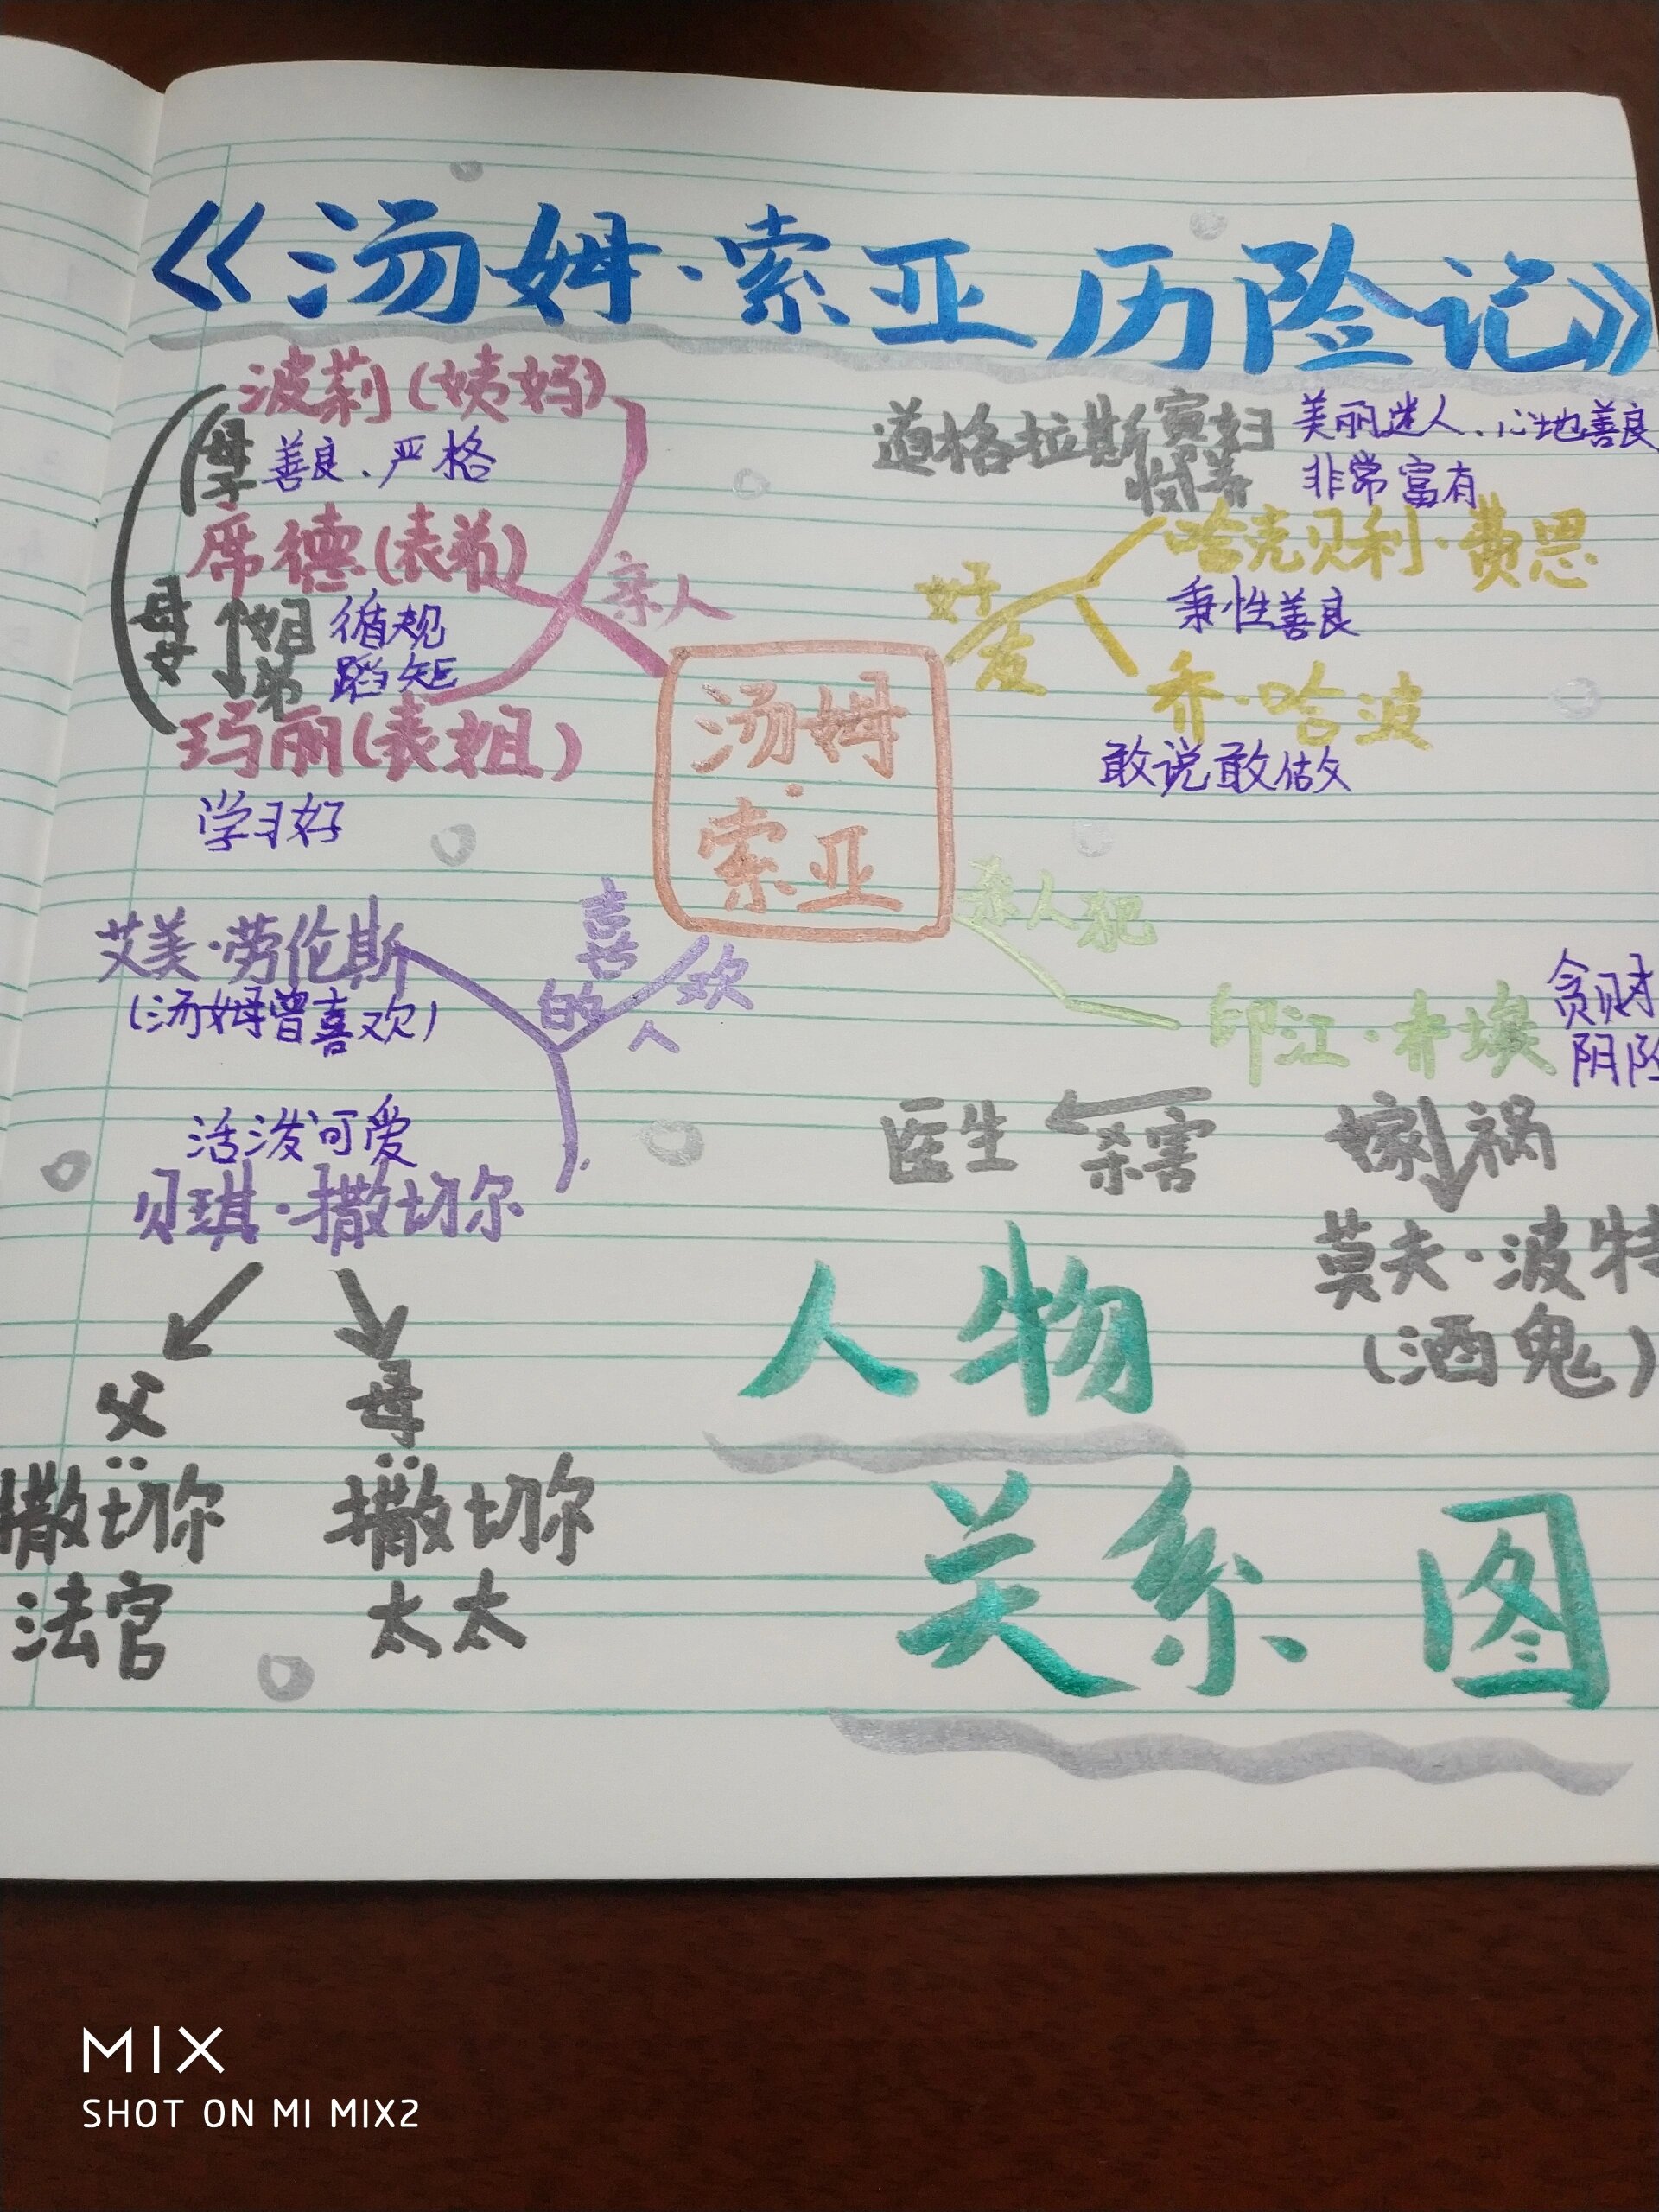 《汤姆·索亚历险记》
波莉(姨妈)
母子
善良、严格
席德(表弟)
母女
姐弟
循规
蹈矩
玛丽(表姐)
学习好
亲人
道格拉斯寡妇
收养
美丽迷人、心地善良
非常富有
好友
哈克贝利·费恩
秉性善良
乔·哈波
敢说敢做
汤姆
·
索亚
艾美·劳伦斯
(汤姆曾喜欢)
喜欢的人
活泼可爱
贝琪·撒切尔
父
:
撒切尔
法官
母
:
撒切尔
太太
杀人犯
印江·乔埃
贪财
阴险
医生
杀害
嫁祸
莫夫·波特
(酒鬼)
人物
关系图
MIX
SHOT ON MI MIX2